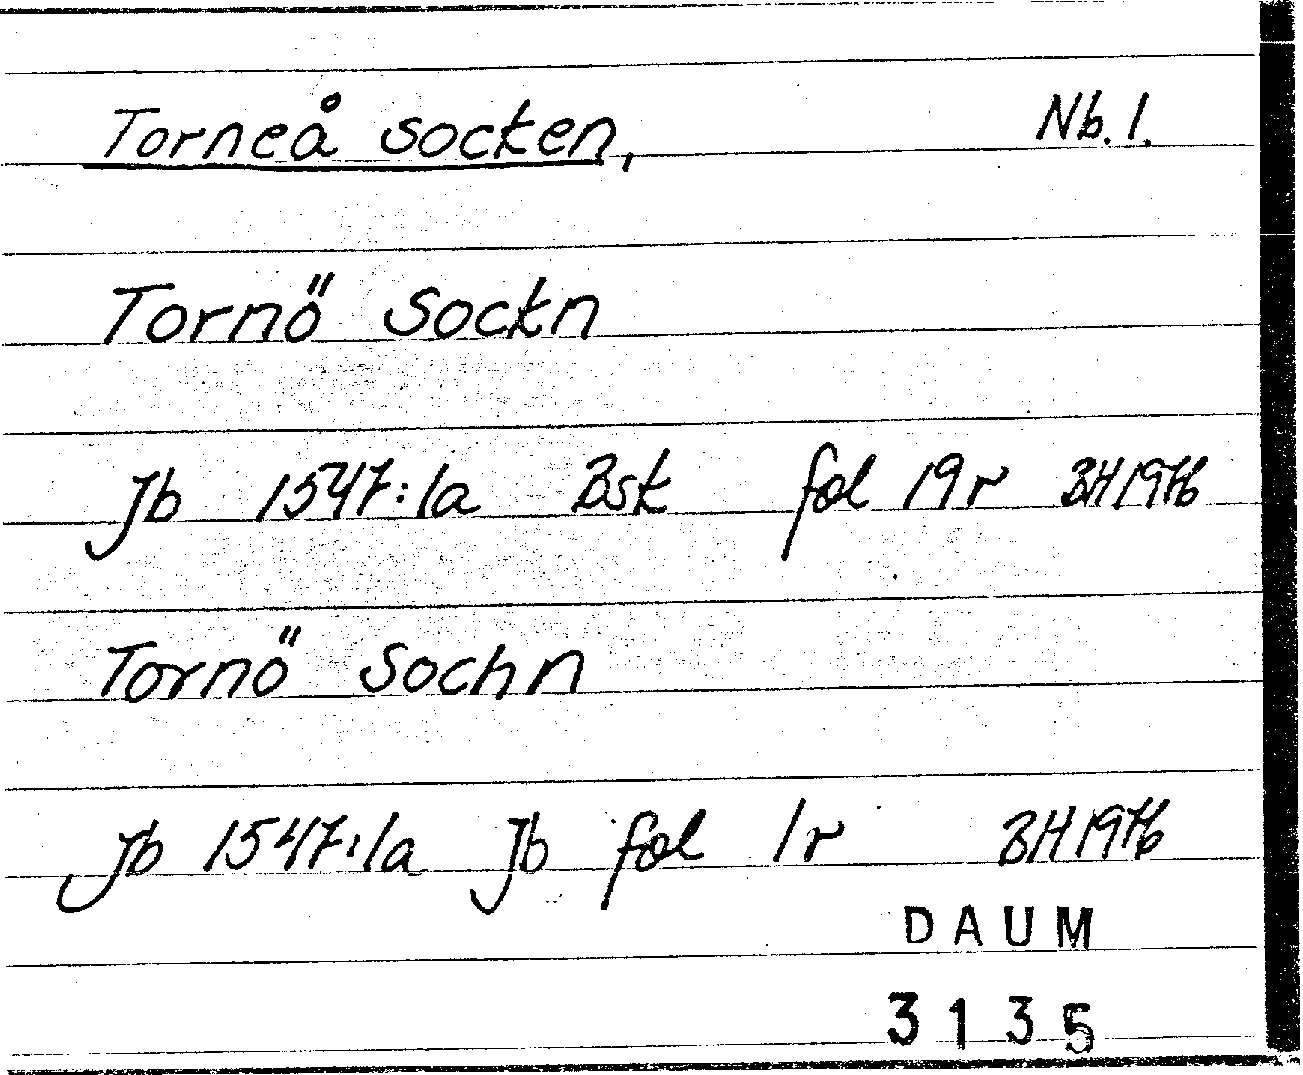 Torneå socken, Nb. 1.
Tornö Sockn
Jb 1547:1a Bsk fol 19 r BH 1976
Tornö Sochn
Jb 1547:1a Jb fol 1 r BH 1976
DAUM
3135